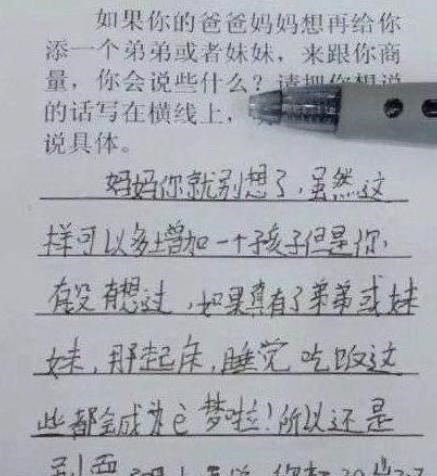 如果你的爸爸妈妈想再给你
添一个弟弟或者妹妹，来跟你商
量，你会说些什么？请把你想说
的话写在横线上，
说具体。
妈妈你就别想了，虽然这
样可以多增加一个孩子但是你，
有没有想过，如果真有了弟弟或妹
妹，那起床，睡觉 吃饭这
些都会成为 梦啦！所以还是
别要